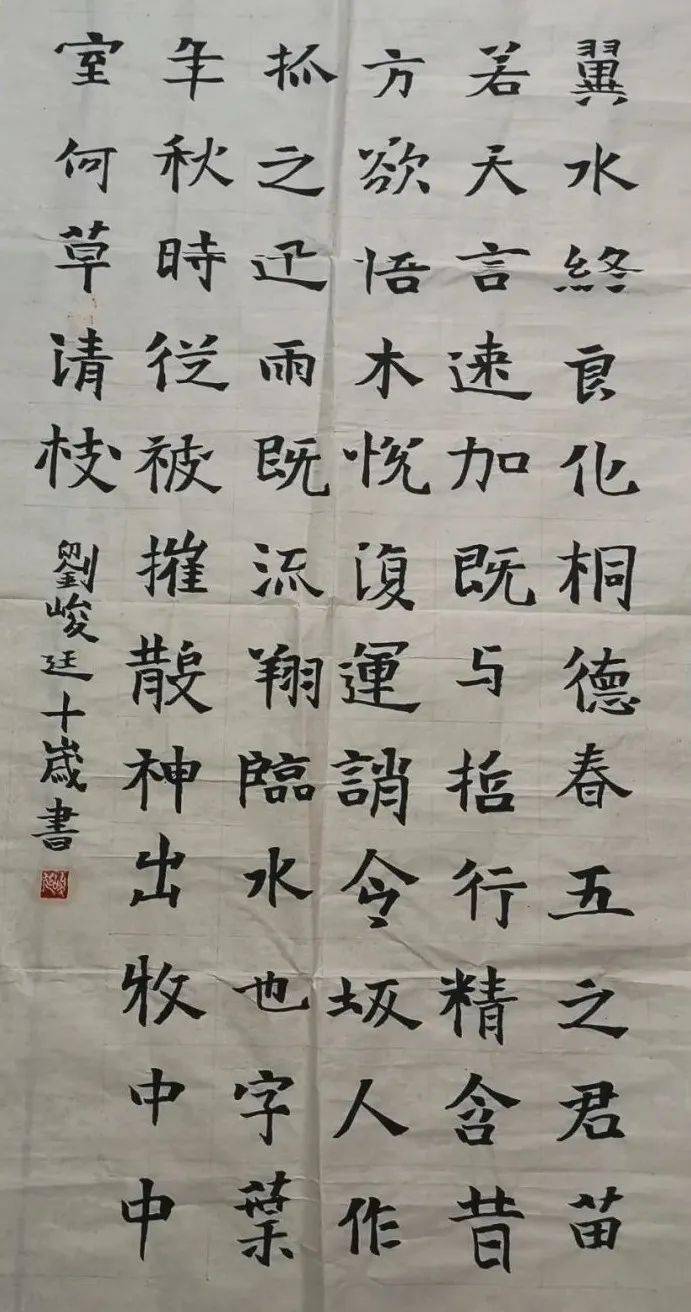 翼水終良化桐德春五之君苗
若天言速加既与哲行精含昔
方欲悟木悅復運誚令坂人作
抓之迅雨既流翔臨水也字葉
年秋時從被摧散神出牧中中
室何草清枝
劉峻廷十歲書